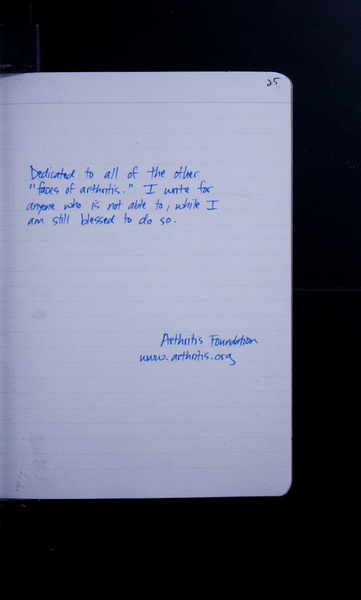 25
Dedicated to all of the other
"faces of arthritis." I write for
anyone who is not able to, while I
am still blessed to do so.
Arthritis Foundation
www.arthritis.org